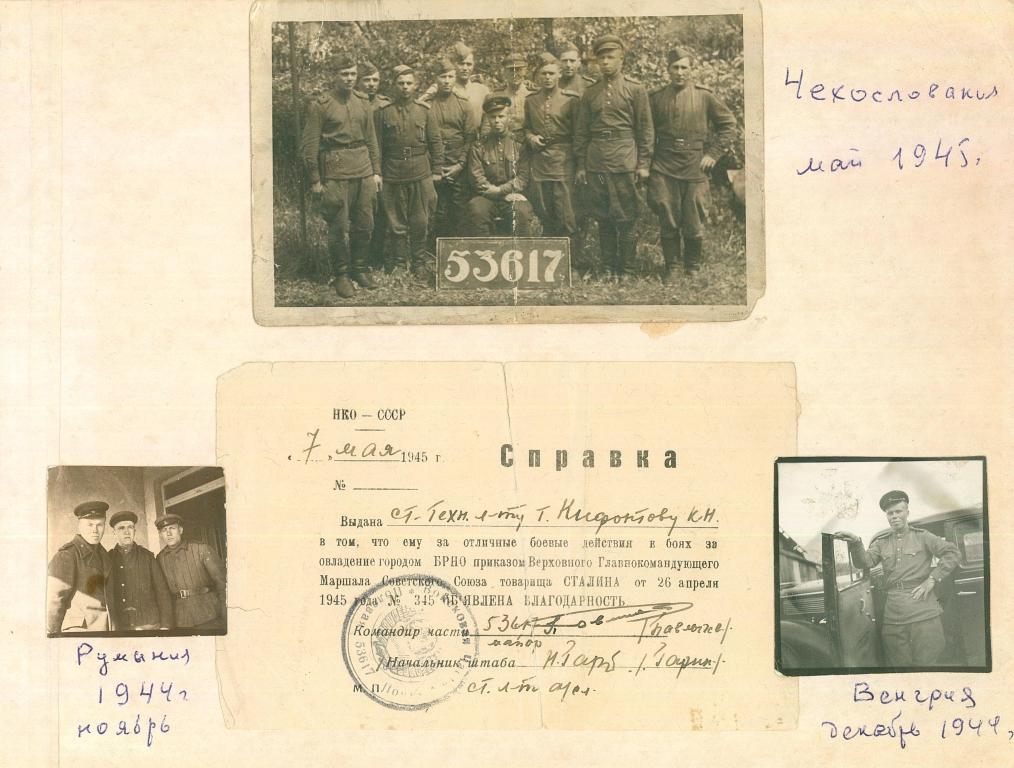 53617
Чехословакия
май 1945.
НКО — СССР
„ 7 " мая 1945 г.
Справка
№
Выдана ст. техн. л-ту т. Кифонтову К.Н.
в том, что ему за отличные боевые действия в боях за
овладение городом БРНО приказом Верховного Главнокомандующего
Маршала Советского Союза товарища СТАЛИНА от 26 апреля
1945 года № 345 ОБ'ЯВЛЕНА БЛАГОДАРНОСТЬ
Командир части 53617
майор
Начальник штаба /Гарин/.
М. П. ст. л-т
Румыния
1944 г
ноябрь
Венгрия
декабрь 1944,